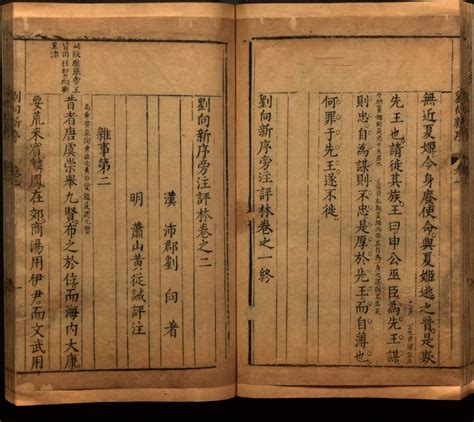 無近夏姬今身廢使命與夏姬逃之晉是欺
先王也請徙其族王曰申公巫臣為先王謀
則忠自為謀則不忠是厚於先王而自薄也
何罪于先王遂不徙
劉向新序旁注評林卷之一終
劉向新序旁注評林卷之二
漢 沛郡劉 向 著
明 蕭山黃從誠評注
雜事第二
此段歷舉帝王
昔者唐虞崇舉九賢布之於位而海內大康
要荒來賓麟鳳在郊商湯用伊尹而文武用
劉向新序